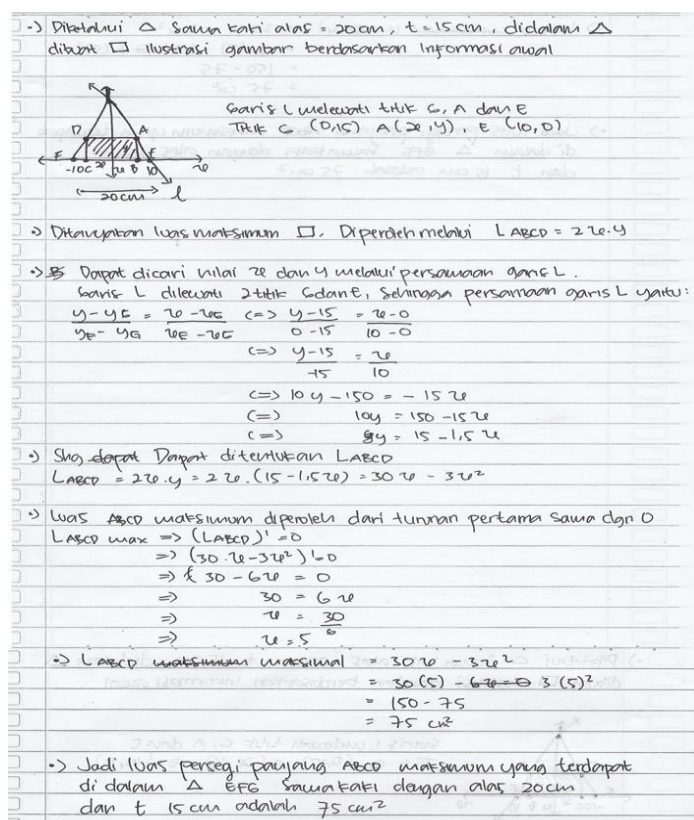 •) Diketahui △ sama kaki alas = 20 cm, t = 15 cm, didalam △
dibuat □ ilustrasi gambar berdasarkan informasi awal
D A
F E
-10 C x x B 10 x
20 cm l
Garis L melewati titik G, A dan E
Titik G (0,15) A (x,y), E (10,0)
•) Ditanyakan luas maksimum □. Diperoleh melalui L ABCD = 2x.y
•) Dapat dicari nilai x dan y melalui persamaan garis L.
Garis L dilewati 2 titik G dan E, sehingga persamaan garis L yaitu:
y - yG / yE - yG = x - xG / xE - xG <=> y-15 / 0-15 = x-0 / 10-0
<=> y-15 / -15 = x / 10
<=> 10y - 150 = - 15x
<=> 10y = 150 - 15x
<=> y = 15 - 1,5x
•) Shg Dapat ditentukan LABCD
LABCD = 2x.y = 2x.(15-1,5x) = 30x - 3x²
•) Luas ABCD maksimum diperoleh dari turunan pertama sama dgn 0
LABCD max => (LABCD)' = 0
=> (30.x-3x²)' = 0
=> 30 - 6x = 0
=> 30 = 6x
=> x = 30/6
=> x = 5
•) LABCD maksimal = 30x - 3x²
= 30(5) - 3(5)²
= 150 - 75
= 75 cm²
•) Jadi luas persegi panjang ABCD maksimum yang terdapat
di dalam △ EFG sama kaki dengan alas 20 cm
dan t 15 cm adalah 75 cm²